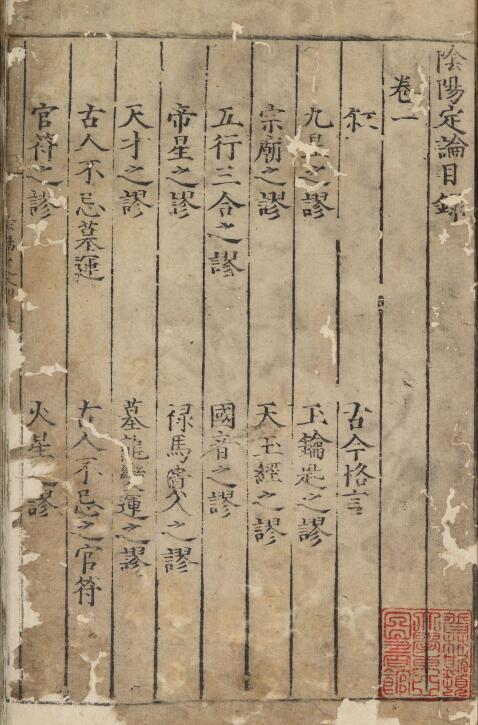 陰陽定論目錄
卷一
古今格言
九星之謬 玉鑰匙之謬
宗廟之謬 天玉經之謬
五行三合之謬 國音之謬
帝星之謬 禄馬貴人之謬
天才之謬 墓龍變運之謬
古人不忌墓運 古人不忌之官符
官符之謬 火星 謬